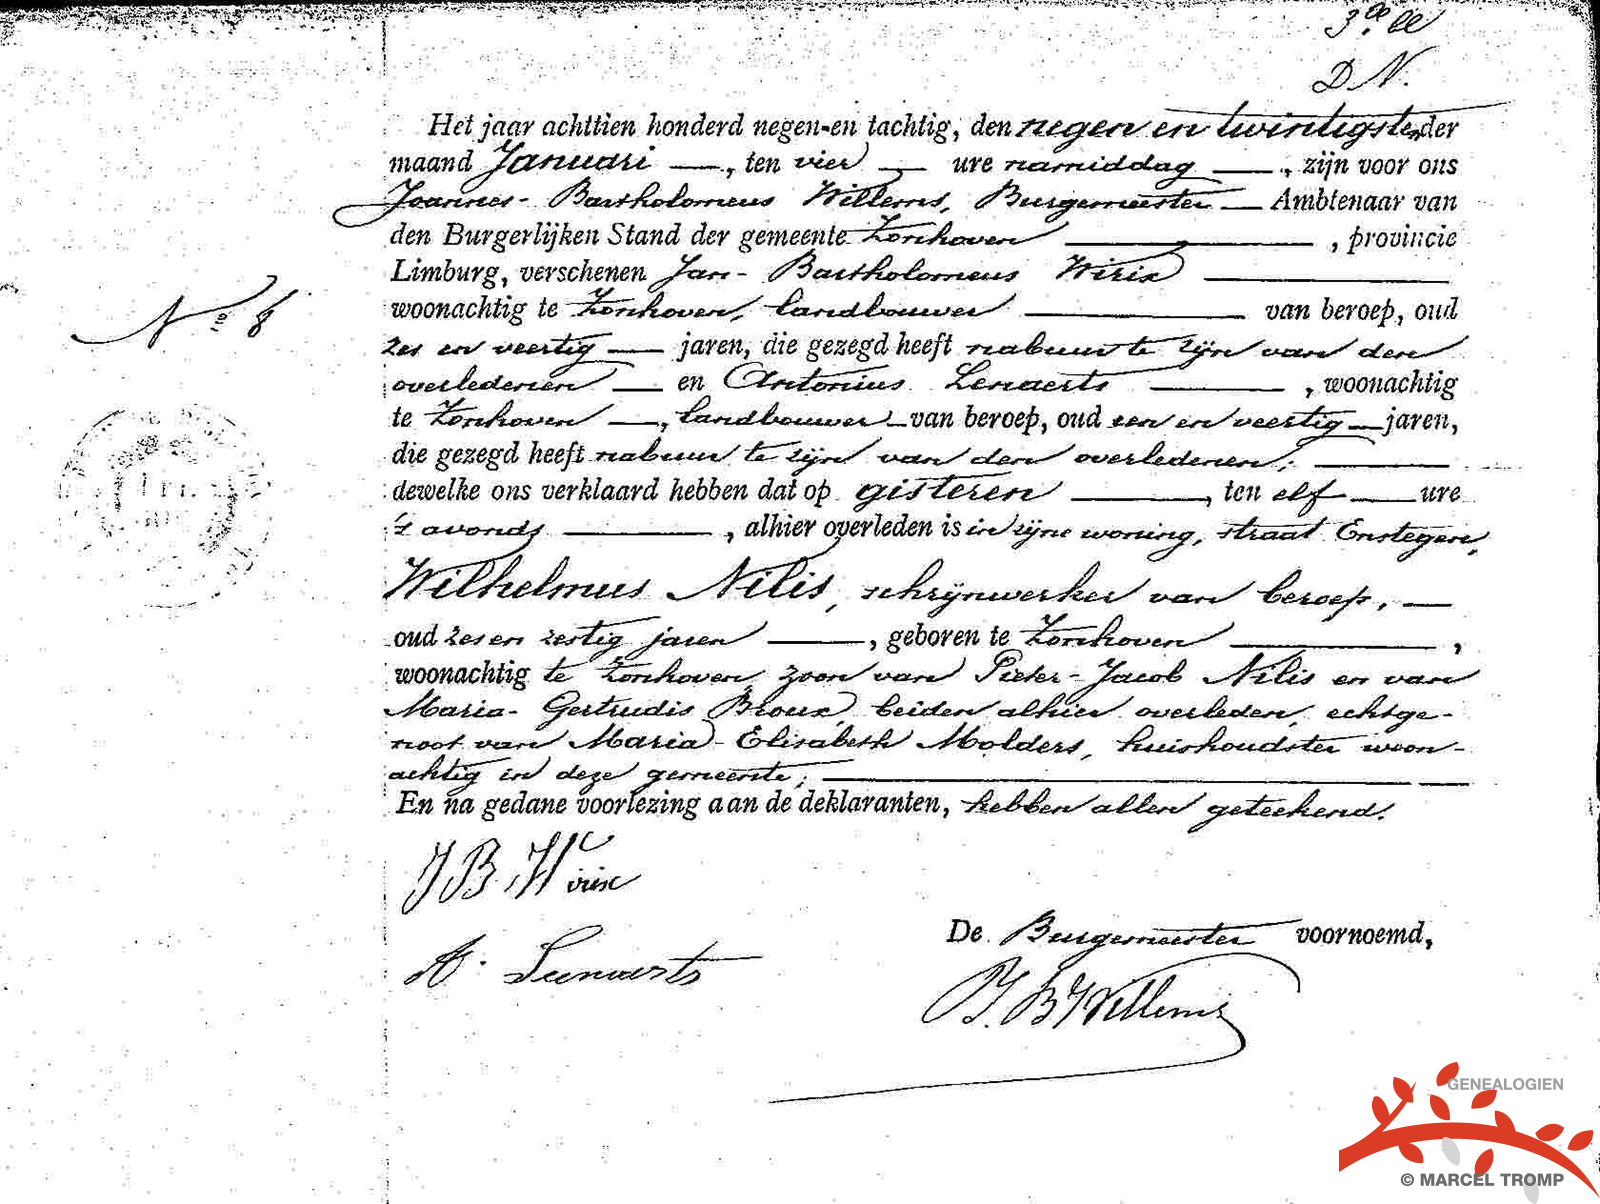 3de bl
D N.
Het jaar achttien honderd negen-en tachtig, den negen en twintigsten der
maand Januari —, ten vier — ure namiddag —, zijn voor ons
Joannes-Bartholomeus Willems, Burgemeester — Ambtenaar van
den Burgerlijken Stand der gemeente Zonhoven —, provincie
Limburg, verschenen Jan-Bartholomeus Wirix —
No 8
woonachtig te Zonhoven, landbouwer — van beroep, oud
zes en veertig — jaren, die gezegd heeft nabuur te zijn van den
overledenen — en Antonius Lenaerts —, woonachtig
te Zonhoven —, landbouwer — van beroep, oud een en veertig — jaren,
die gezegd heeft nabuur te zijn van den overledenen; —
dewelke ons verklaard hebben dat op gisteren —, ten elf — ure
's avonds —, alhier overleden is in zijne woning, straat Enstegen,
Wilhelmus Nilis, schrijnwerker van beroep, —
oud zes en zestig jaren —, geboren te Zonhoven —,
woonachtig te Zonhoven, zoon van Pieter-Jacob Nilis en van
Maria-Gertrudis Broux, beiden alhier overleden, echtge-
noot van Maria-Elisabeth Molders, huishoudster woon-
achtig in deze gemeente; —
En na gedane voorlezing aan de deklaranten, hebben allen geteekend.
J B Wirix
De Burgemeester voornoemd,
A. Lenaerts
J. B Willems
GENEALOGIEN
© MARCEL TROMP